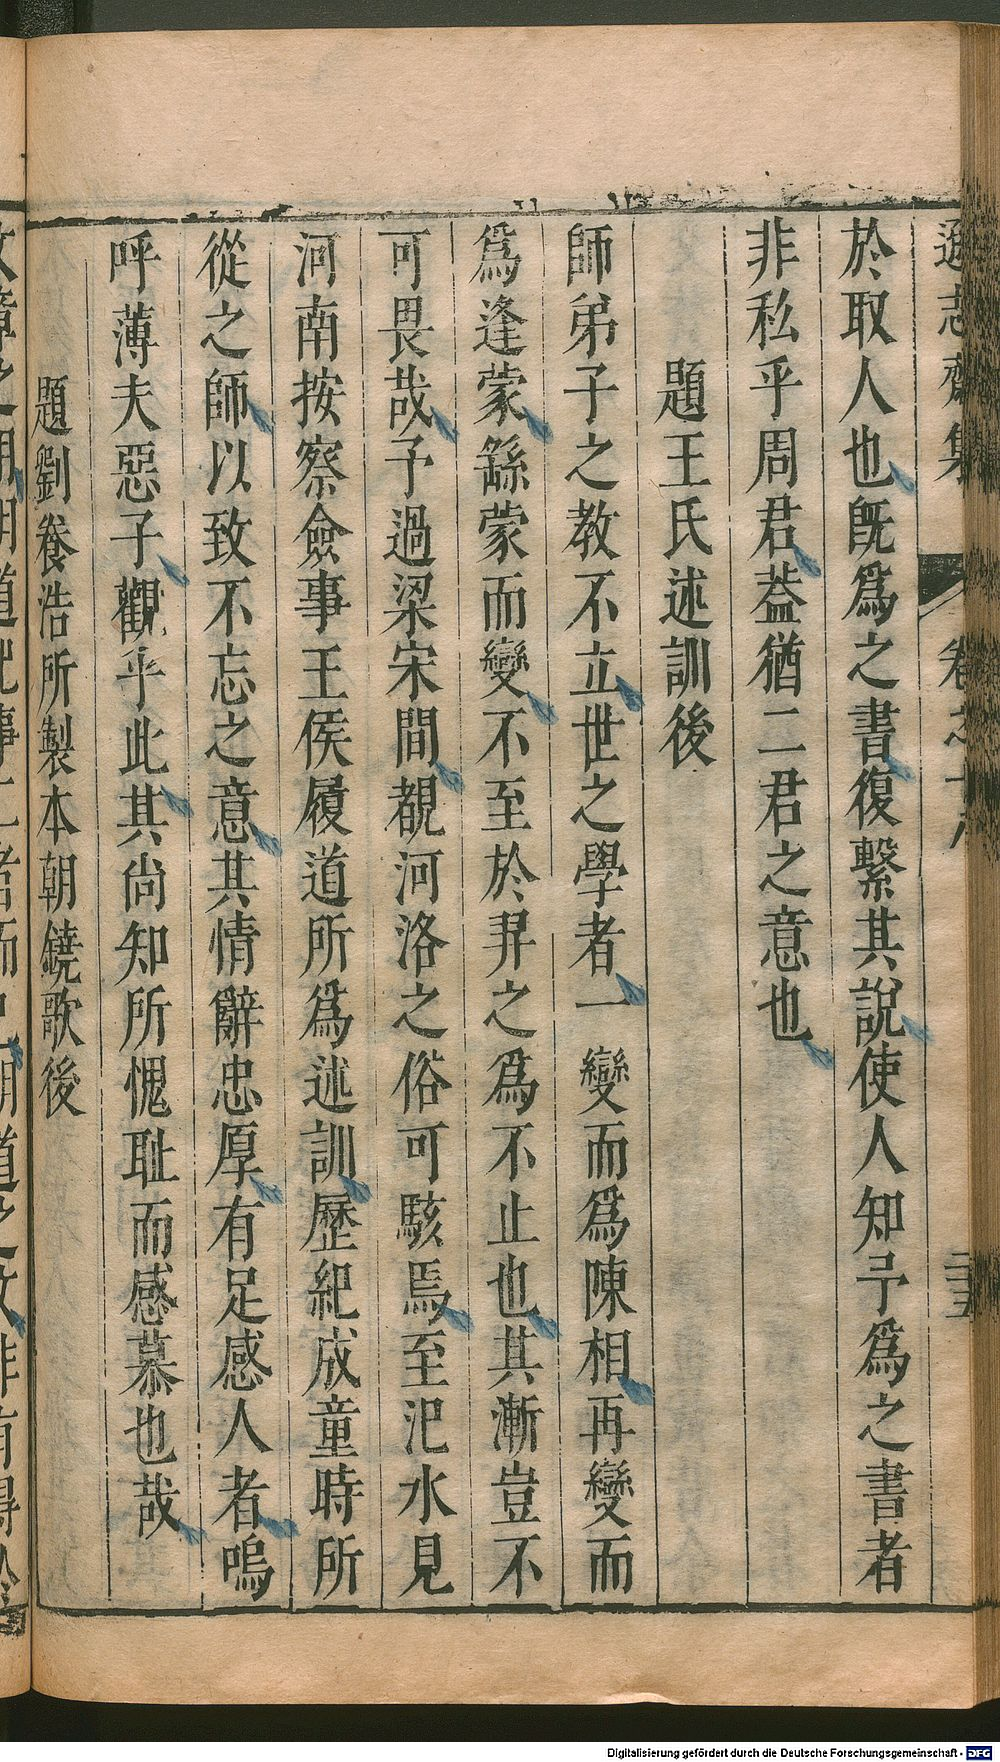 遜志齋集 卷之十八 二十五
於取人也旣爲之書復繫其說使人知予爲之書者
非私乎周君葢猶二君之意也
題王氏述訓後
師弟子之教不立世之學者一變而爲陳相再變而
爲逢蒙繇蒙而變不至於羿之爲不止也其漸豈不
可畏哉予過梁宋間覩河洛之俗可駭焉至汜水見
河南按察僉事王侯履道所爲述訓歷紀成童時所
從之師以致不忘之意其情辭忠厚有足感人者嗚
呼薄夫惡子觀乎此其尚知所愧耻而感慕也哉
題劉養浩所製本朝鐃歌後
Digitalisierung gefördert durch die Deutsche Forschungsgemeinschaft - DFG